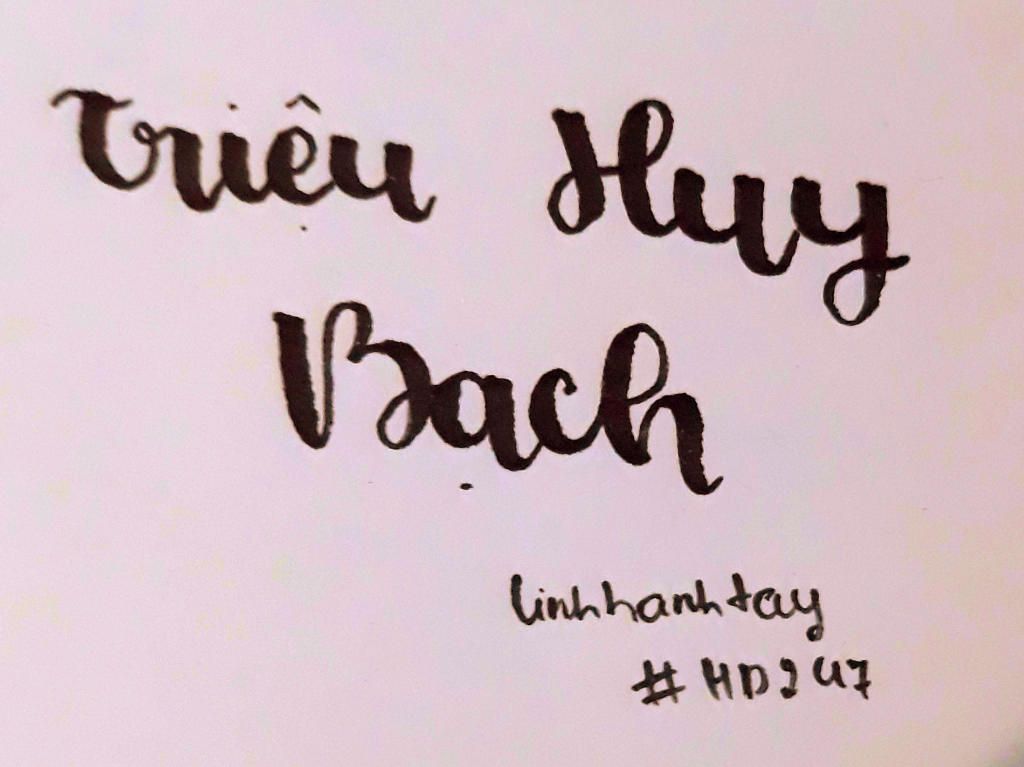 Triệu Huy
Bạch
linhhanhtay
#HD247